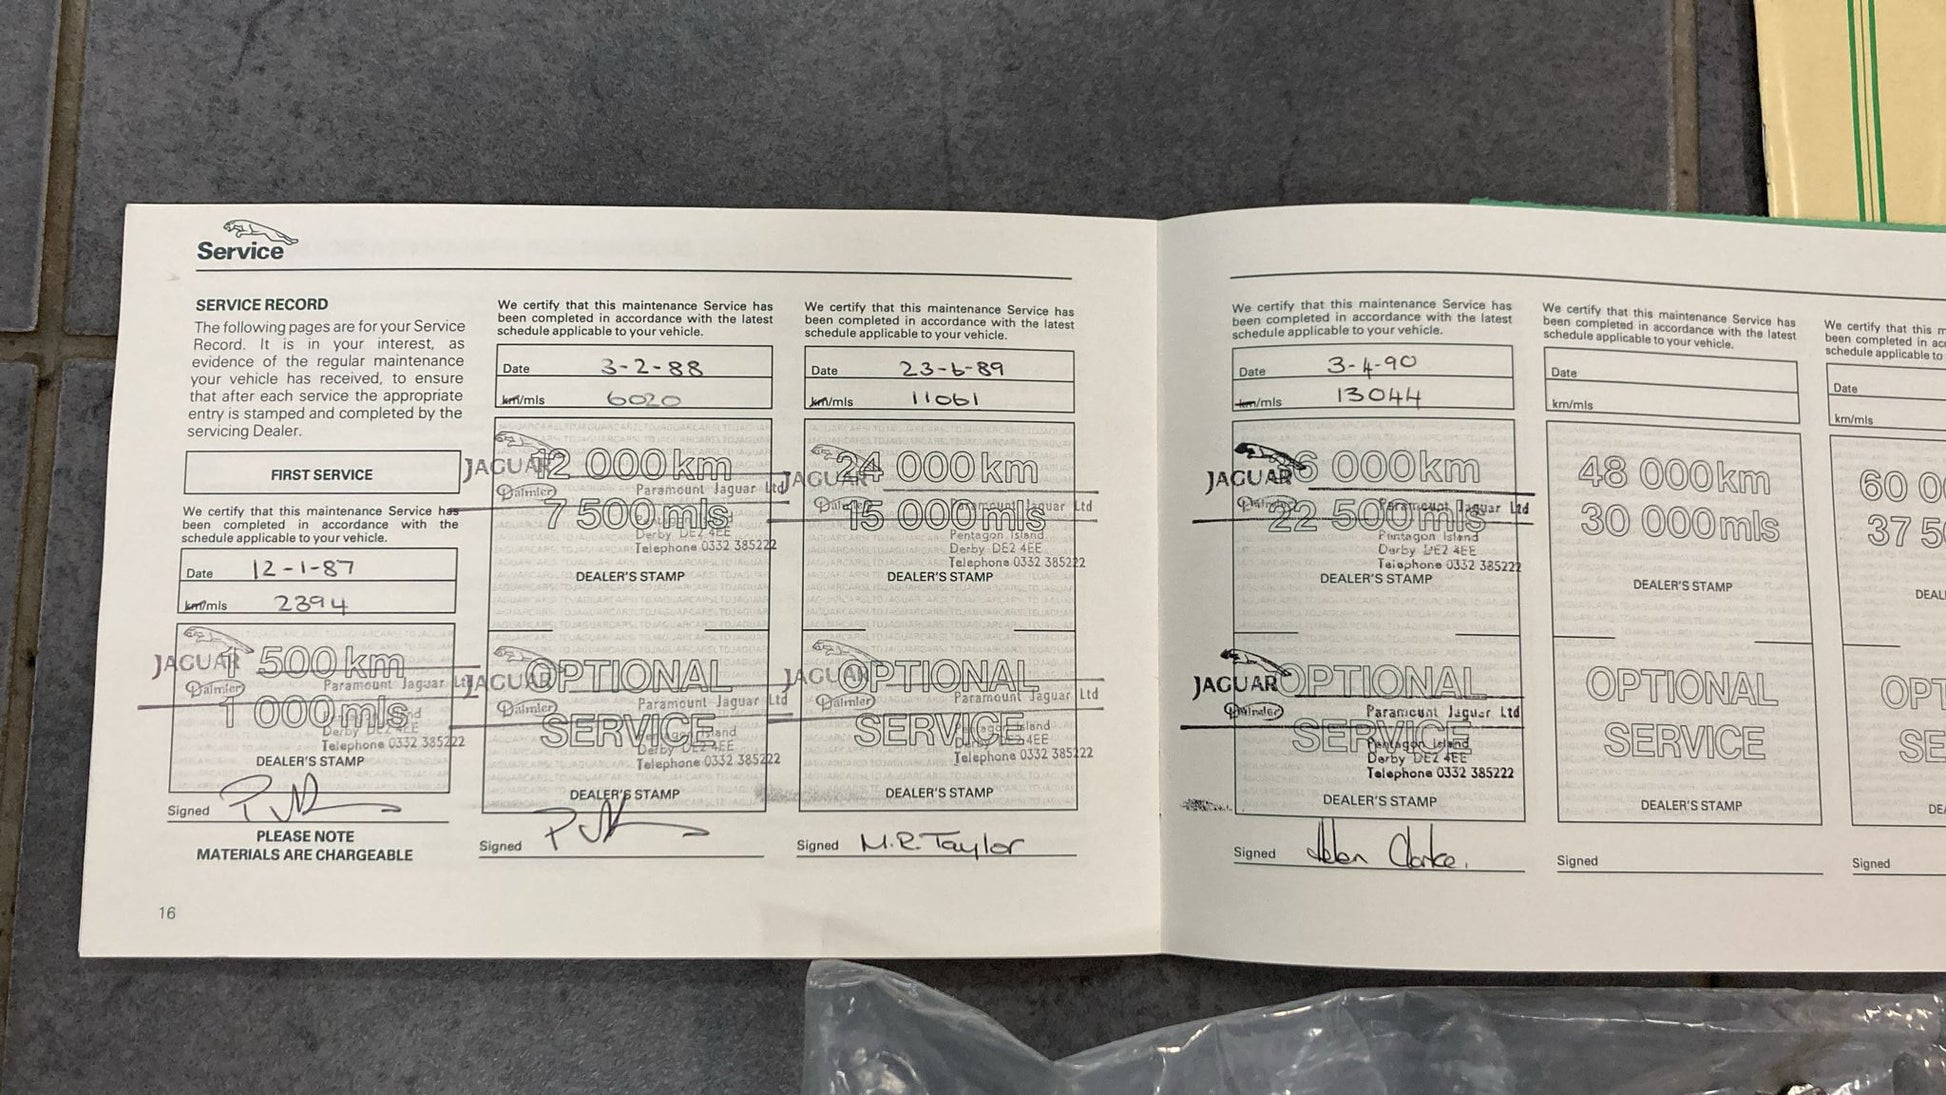 Service
SERVICE RECORD
The following pages are for your Service
Record. It is in your interest, as
evidence of the regular maintenance
your vehicle has received, to ensure
that after each service the appropriate
entry is stamped and completed by the
servicing Dealer.
FIRST SERVICE
We certify that this maintenance Service has
been completed in accordance with the
schedule applicable to your vehicle.
Date 12-1-87
km/mls 2394
JAGUAR
1 500 km
Daimler Paramount Jaguar Ltd
1 000 mls
Derby DE2 4EE
Telephone 0332 385222
DEALER'S STAMP
Signed
PLEASE NOTE
MATERIALS ARE CHARGEABLE
16
We certify that this maintenance Service has
been completed in accordance with the latest
schedule applicable to your vehicle.
Date 3-2-88
km/mls 6020
JAGUAR
12 000 km
Daimler Paramount Jaguar Ltd
7 500 mls
Derby DE2 4EE
Telephone 0332 385222
DEALER'S STAMP
JAGUAR
OPTIONAL
Daimler Paramount Jaguar Ltd
SERVICE
Derby DE2 4EE
Telephone 0332 385222
DEALER'S STAMP
Signed
We certify that this maintenance Service has
been completed in accordance with the latest
schedule applicable to your vehicle.
Date 23-6-89
km/mls 11061
JAGUAR
24 000 km
Daimler Paramount Jaguar Ltd
15 000 mls
Pentagon Island
Derby DE2 4EE
Telephone 0332 385222
DEALER'S STAMP
JAGUAR
OPTIONAL
Daimler Paramount Jaguar Ltd
SERVICE
Pentagon Island
Derby DE2 4EE
Telephone 0332 385222
DEALER'S STAMP
Signed M.R. Taylor
We certify that this maintenance Service has
been completed in accordance with the latest
schedule applicable to your vehicle.
Date 3-4-90
km/mls 13044
JAGUAR
36 000 km
Daimler Paramount Jaguar Ltd
22 500 mls
Pentagon Island
Derby DE2 4EE
Telephone 0332 385222
DEALER'S STAMP
JAGUAR
OPTIONAL
Daimler Paramount Jaguar Ltd
SERVICE
Pentagon Island
Derby DE2 4EE
Telephone 0332 385222
DEALER'S STAMP
Signed Helen Clarke.
We certify that this maintenance Service has
been completed in accordance with the latest
schedule applicable to your vehicle.
Date
km/mls
48 000 km
30 000 mls
DEALER'S STAMP
OPTIONAL
SERVICE
DEALER'S STAMP
Signed
We certify that this m
been completed in ac
schedule applicable to
Date
km/mls
60 0
37 5
DEAL
OPT
SE
DE
Signed